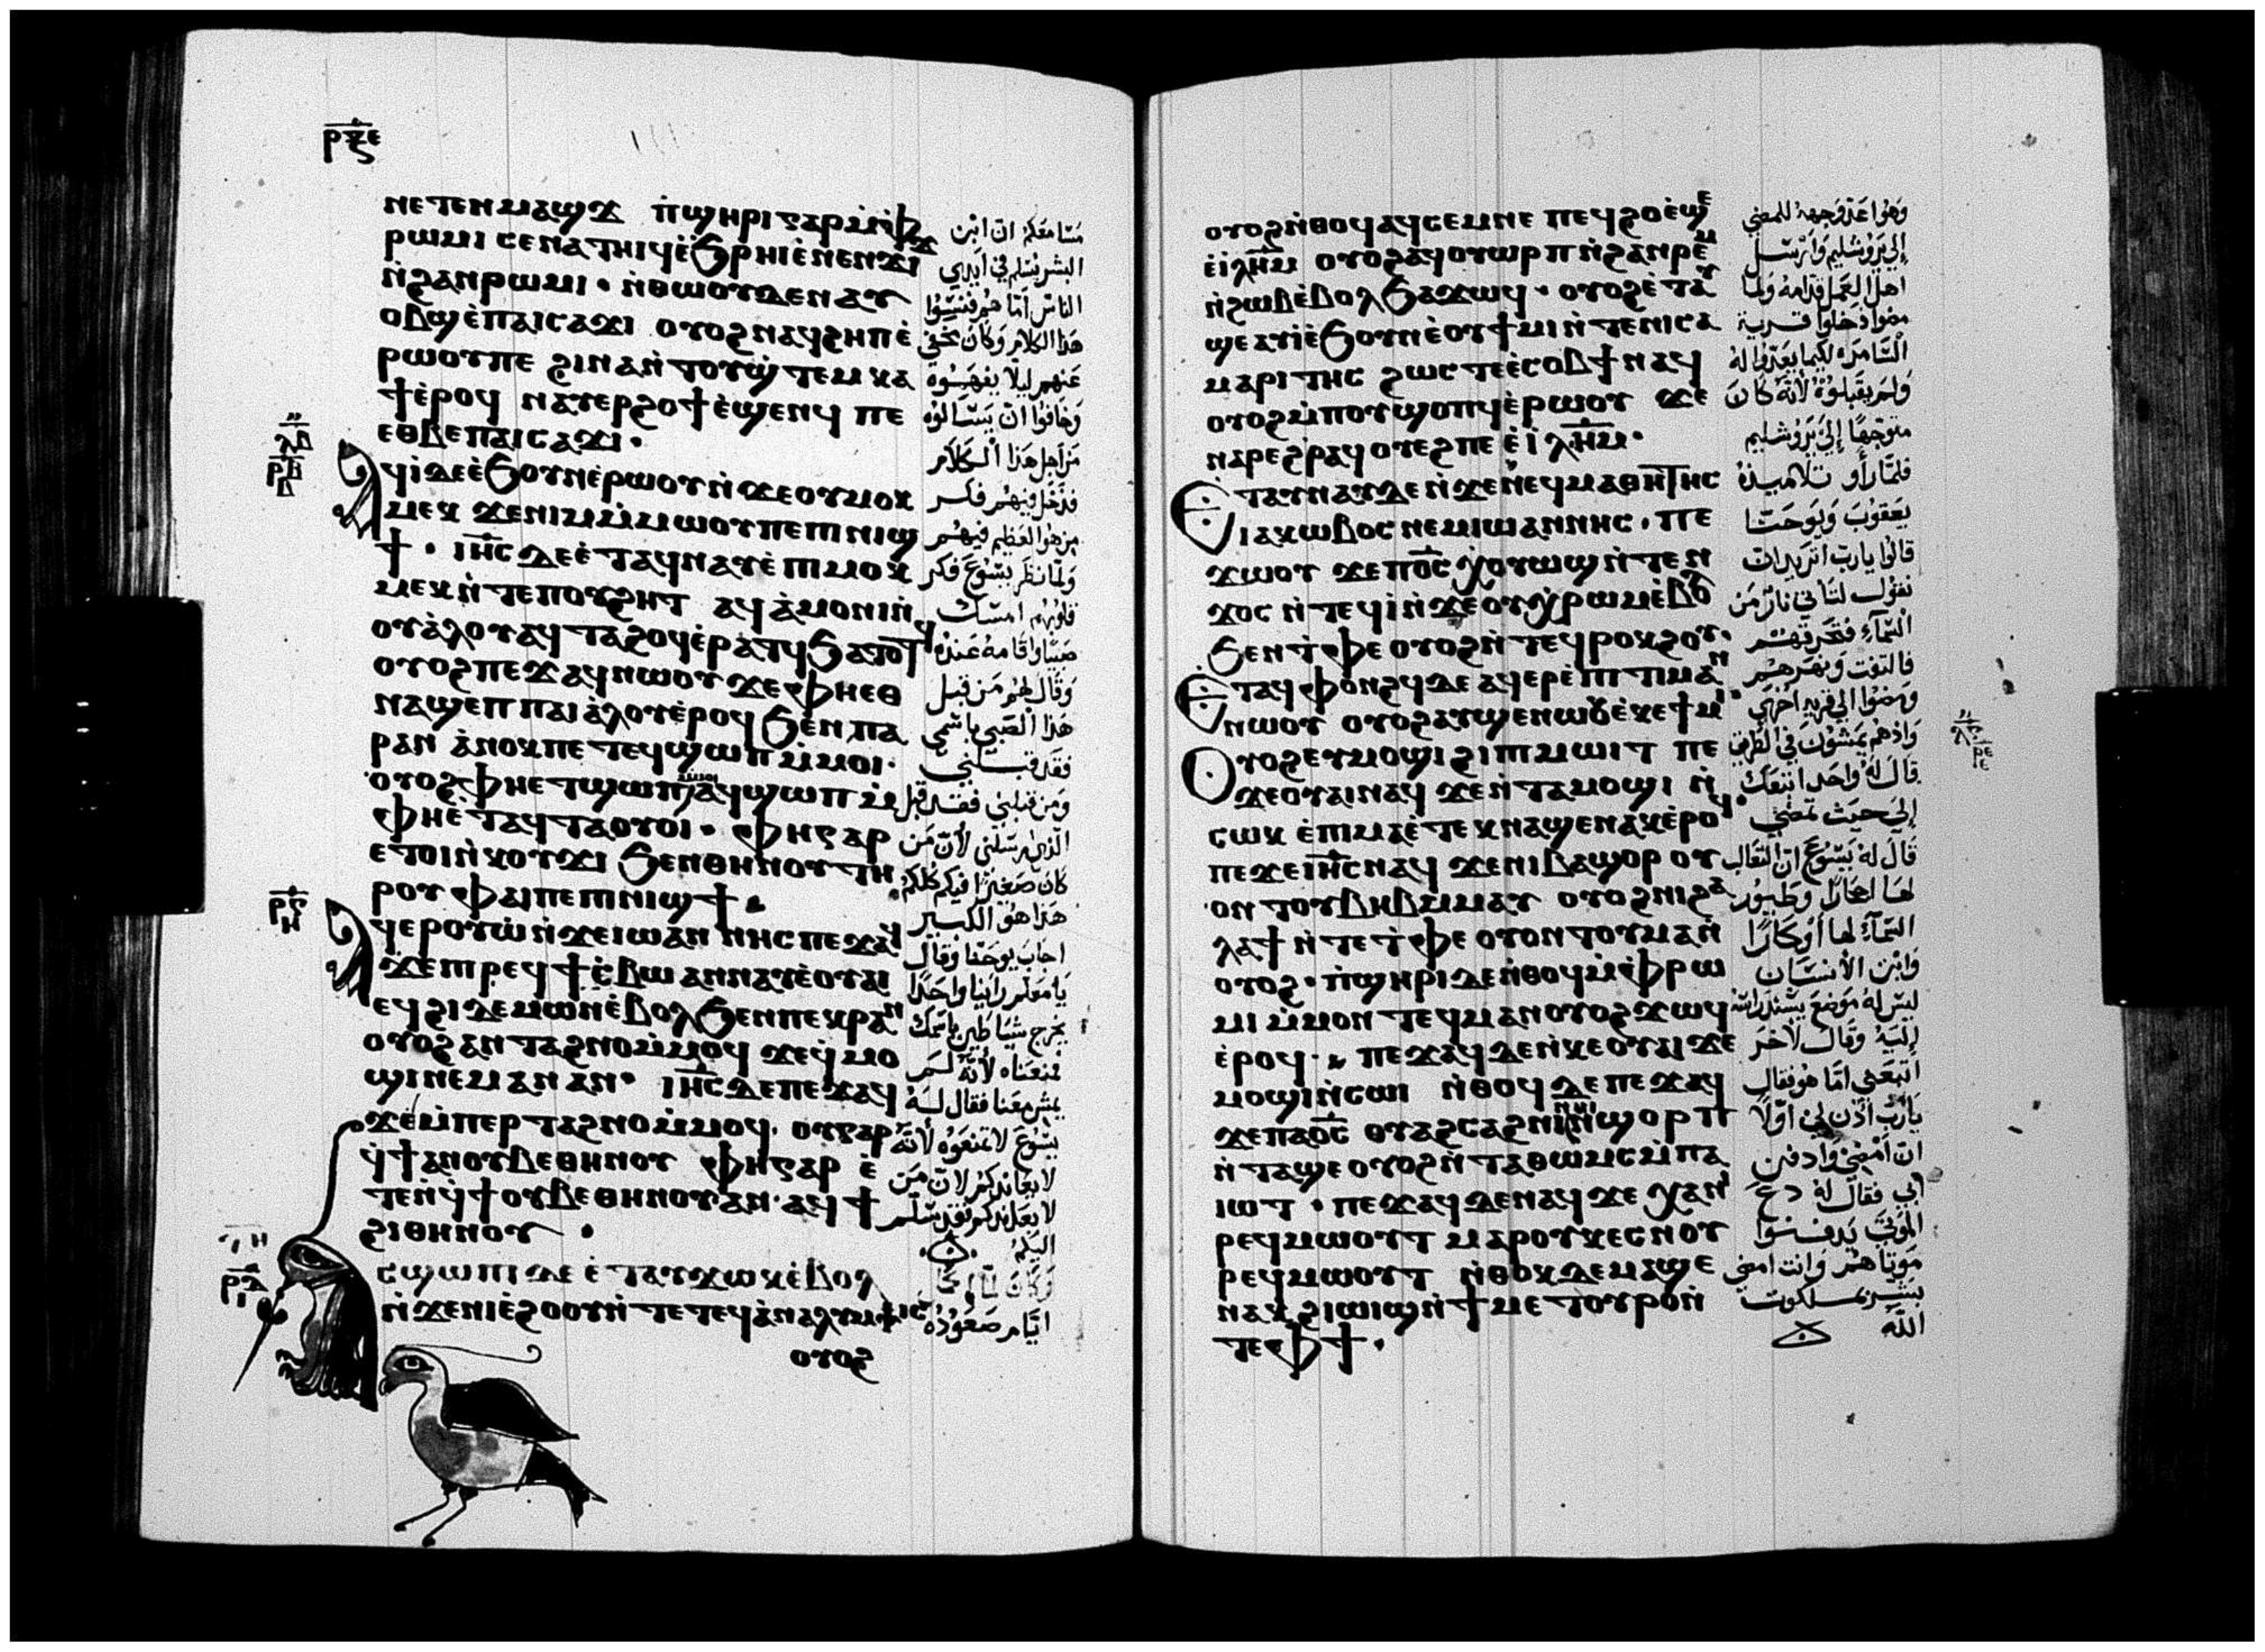 ⲣⲝⲋ
ⲛⲉⲧⲉⲛⲙⲁϣϫ ⲡ̀ϣⲏⲣⲓ ⲅⲁⲣ ⲙ̀ⲫ
ⲣⲱⲙⲓ ⲥⲉⲛⲁⲧⲏⲓϥ ⲉ̀ϧⲣⲏⲓ ⲉ̀ⲛⲉⲛϫⲓϫ
ⲛ̀ϩⲁⲛⲣⲱⲙⲓ · ⲛ̀ⲑⲱⲟⲩ ⲇⲉ ⲛⲁⲩ
ⲟⲃϣ ⲉ̀ⲡⲁⲓⲥⲁϫⲓ ⲟⲩⲟϩ ⲛⲁϥϩⲏⲡ ⲉ̀
ⲣⲱⲟⲩ ⲡⲉ ϩⲓⲛⲁ ⲛ̀ⲧⲟⲩϣ̀ⲧⲉⲙⲕⲁ
ϯ ⲉ̀ⲣⲟϥ ⲛⲁⲩⲉⲣϩⲟϯ ⲉ̀ϣⲉⲛϥ ⲡⲉ
ⲉⲑⲃⲉ ⲡⲁⲓⲥⲁϫⲓ ·
ⲁϥⲓ̀ ⲇⲉ ⲉ̀ϧⲟⲩⲛ ⲉ̀ⲣⲱⲟⲩ ⲛ̀ϫⲉ ⲟⲩⲙⲟⲕ
ⲙⲉⲕ ϫⲉ ⲛⲓⲙ ⲙ̀ⲙⲱⲟⲩ ⲡⲉ ⲡⲓⲛⲓϣ
ϯ · ⲓⲏ̅ⲥ ⲇⲉ ⲉ̀ⲧⲁϥⲛⲁⲩ ⲉ̀ⲡⲓⲙⲟⲕ
ⲙⲉⲕ ⲛ̀ⲧⲉ ⲡⲟⲩϩⲏⲧ ⲁϥⲁ̀ⲙⲟⲛⲓ ⲛ̀
ⲟⲩⲁ̀ⲗⲟⲩ ⲁϥⲧⲁϩⲟϥ ⲉ̀ⲣⲁⲧϥ ϧⲁⲧⲟⲧϥ
ⲟⲩⲟϩ ⲡⲉϫⲁϥ ⲛⲱⲟⲩ ϫⲉ ⲫⲏ ⲉⲑ
ⲛⲁϣⲉⲡ ⲡⲁⲓⲁ̀ⲗⲟⲩ ⲉ̀ⲣⲟϥ ϧⲉⲛ ⲡⲁ
ⲣⲁⲛ ⲁ̀ⲛⲟⲕ ⲡⲉⲧⲉϥϣⲱⲡ ⲙ̀ⲙⲟⲓ ·
ⲟⲩⲟϩ ⲫⲏ ⲉⲧϣⲱⲡ ⲙ̀ⲙⲟⲓ ⲁϥϣⲱⲡ ⲙ̀
ⲫⲏ ⲉ̀ⲧⲁϥⲧⲁⲟⲩⲟⲓ · ⲫⲏ ⲅⲁⲣ
ⲉⲧⲟⲓ ⲛ̀ⲕⲟⲩϫⲓ ϧⲉⲛ ⲑⲏⲛⲟⲩ ⲧⲏ
ⲣⲟⲩ ⲫⲁⲓ ⲡⲉ ⲡⲓⲛⲓϣϯ
ⲁϥⲉⲣⲟⲩⲱ̀ ⲛ̀ϫⲉ ⲓⲱⲁⲛⲛⲏⲥ ⲡⲉϫⲁϥ
ϫⲉ ⲡⲓⲣⲉϥϯⲥ̀ⲃⲱ ⲁⲛⲛⲁⲩ ⲉ̀ⲟⲩⲁⲓ
ⲉϥϩⲓ ⲇⲉⲙⲱⲛ ⲉ̀ⲃⲟⲗ ϧⲉⲛ ⲡⲉⲕⲣⲁⲛ
ⲟⲩⲟϩ ⲁⲛⲧⲁϩⲛⲟ ⲙ̀ⲙⲟϥ ϫⲉ ϥ̀ⲙⲟ
ϣⲓ ⲛⲉⲙⲁⲛ ⲁⲛ · ⲓⲏ̅ⲥ ⲇⲉ ⲡⲉϫⲁϥ
ϫⲉ ⲙ̀ⲡⲉⲣⲧⲁϩⲛⲟ ⲙ̀ⲙⲟϥ · ⲟⲩ ⲅⲁⲣ
ϥ̀ϯ ⲁⲛ ⲟⲩⲃⲉ ⲑⲏⲛⲟⲩ ⲫⲏ ⲅⲁⲣ ⲉ̀
ⲧⲉⲛϥ̀ϯ ⲟⲩⲃⲉ ⲑⲏⲛⲟⲩ ⲁⲛ · ⲁϥϯ
ϩⲓ ⲑⲏⲛⲟⲩ ·
ⲥϣⲱⲡⲓ ⲇⲉ ⲉ̀ⲧⲁⲩϫⲱⲕ ⲉ̀ⲃⲟⲗ
ⲛ̀ϫⲉ ⲛⲓⲉ̀ϩⲟⲟⲩ ⲛ̀ⲧⲉ ⲧⲉϥⲁ̀ⲛⲁⲗⲩⲙⲯⲓⲥ
ⲟⲩⲟϩ
مسامعكم ان ابن
البشر يسلم في ايدي
الناس اما هم فنسوا
هذا الكلام وكان مخفي
عنهم ليلا يفهموه
وخافوا ان يسالوه
من اجل هذا الكلام
فدخل فيهم فكر
من هو العظيم فيهم
ولما نظر يسوع فكر
قلوبهم امسك
صبيا واقامه عنده
وقال لهم من قبل
هذا الصبي باسمي
فقد قبلني
ومن قبلني فقد قبل
الذي ارسلني لأن من
كان صغيرا فيكم كلكم
هذا هو الكبير
اجاب يوحنا وقال
يا معلم راينا واحدا
يخرج شياطين باسمك
فمنعناه لأنه لم
يمش معنا فقال له
يسوع لا تمنعوه لأنه
لا يعاندكم لان من
لا يعاندكم فقد سلم
اليكم
وكان لما كملت
ايام صعوده
ⲟⲩⲟϩ ⲛ̀ⲑⲟϥ ⲁϥⲥⲉⲙⲛⲉ ⲡⲉϥϩⲟ ⲉ̀ϣⲉ
ⲉ̀ⲓ̀ⲗⲏ̅ⲙ ⲟⲩⲟϩ ⲁϥⲟⲩⲱⲣⲡ ⲛ̀ϩⲁⲛⲣⲉϥ
ⲛ̀ϩⲱⲃ ⲉ̀ⲃⲟⲗ ϧⲁϫⲱϥ · ⲟⲩⲟϩ ⲉ̀ⲧⲁⲩ
ϣⲉ ⲁⲩⲓ̀ ⲉ̀ϧⲟⲩⲛ ⲉ̀ⲟⲩϯⲙⲓ ⲛ̀ⲧⲉ ⲛⲓⲥⲁ
ⲙⲁⲣⲓⲧⲏⲥ ϩⲱⲥ ⲧⲉ ⲉ̀ⲥⲟⲃϯ ⲛⲁϥ
ⲟⲩⲟϩ ⲙ̀ⲡⲟⲩϣⲟⲡϥ ⲉ̀ⲣⲱⲟⲩ ϫⲉ
ⲛⲁⲣⲉ ϩⲣⲁϥ ⲟⲩⲉϩ ⲡⲉ ⲉ̀ⲓ̀ⲗⲏ̅ⲙ ·
ⲉⲧⲁⲩⲛⲁⲩ ⲇⲉ ⲛ̀ϫⲉ ⲛⲉϥⲙⲁⲑⲏⲧⲏⲥ
ⲓⲁⲕⲱⲃⲟⲥ ⲛⲉⲙ ⲓⲱⲁⲛⲛⲏⲥ · ⲡⲉ
ϫⲱⲟⲩ ϫⲉ ⲡⲟ̅ⲥ ⲭⲟⲩⲱϣ ⲛ̀ⲧⲉⲛ
ϫⲟⲥ ⲛ̀ⲧⲉϥⲓ̀ ⲛ̀ϫⲉ ⲟⲩⲭ̀ⲣⲱⲙ ⲉ̀ⲃⲟⲗ
ϧⲉⲛ ⲧ̀ⲫⲉ ⲟⲩⲟϩ ⲛ̀ⲧⲉϥⲣⲟⲕϩⲟⲩ ·
ⲉⲧⲁϥⲫⲟⲛϩϥ ⲇⲉ ⲁϥⲉⲣⲉ̀ⲡⲓⲧⲓⲙⲁⲛ
ⲛⲱⲟⲩ ⲟⲩⲟϩ ⲁⲩϣⲉⲛⲱⲟⲩ ⲉ̀ⲕⲉϯⲙⲓ ·
ⲟⲩⲟϩ ⲉⲩⲙⲟϣⲓ ϩⲓ ⲡⲓⲙⲱⲓⲧ ⲡⲉ
ϫⲉ ⲟⲩⲁⲓ ⲛⲁϥ ϫⲉ ⲛ̀ⲧⲁⲙⲟϣⲓ ⲛ̀
ⲥⲱⲕ ⲉ̀ⲡⲓⲙⲁ ⲉ̀ⲧⲉⲕⲛⲁϣⲉⲛⲁⲕ ⲉ̀ⲣⲟϥ ·
ⲡⲉϫⲉ ⲓⲏ̅ⲥ ⲛⲁϥ ϫⲉ ⲛⲓⲃⲁϣⲟⲣ ⲟⲩ
ⲟⲛ ⲧⲟⲩⲃⲏⲃ ⲙ̀ⲙⲁⲩ ⲟⲩⲟϩ ⲛⲓϩⲁ
ⲗⲁϯ ⲛ̀ⲧⲉ ⲧ̀ⲫⲉ ⲟⲩⲟⲛ ⲧⲟⲩⲙⲁⲛ̀
ⲟⲩⲟϩ · ⲡ̀ϣⲏⲣⲓ ⲇⲉ ⲛ̀ⲑⲟϥ ⲙ̀ⲫ̀ⲣⲱ
ⲙⲓ ⲙ̀ⲙⲟⲛ ⲧⲉϥ ⲙⲁ ⲛⲟⲩⲟϩ ϫⲱϥ
ⲉ̀ⲣⲟϥ · ⲡⲉϫⲁϥ ⲇⲉ ⲛ̀ⲕⲉⲟⲩⲁⲓ ϫⲉ
ⲙⲟϣⲓ ⲛ̀ⲥⲱⲓ ⲛ̀ⲑⲟϥ ⲇⲉ ⲡⲉϫⲁϥ
ϫⲉ ⲡⲁⲟ̅ⲥ ⲟⲩⲁϩⲥⲁϩⲛⲓ ⲛⲏⲓ ⲛ̀ϣⲟⲣⲡ
ⲛ̀ⲧⲁϣⲉ ⲟⲩⲟϩ ⲛ̀ⲧⲁⲑⲱⲙⲥ ⲙ̀ⲡⲁ
ⲓⲱⲧ · ⲡⲉϫⲁϥ ⲇⲉ ⲛⲁϥ ϫⲉ ⲭⲁ ⲛⲓ
ⲣⲉϥⲙⲱⲟⲩⲧ ⲙⲁⲣⲟⲩⲕⲉⲥ ⲛⲟⲩ
ⲣⲉϥⲙⲱⲟⲩⲧ ⲛ̀ⲑⲟⲕ ⲇⲉ ⲙⲁϣⲉ
ⲛⲁⲕ ϩⲓⲱⲓϣ ⲛ̀ϯⲙⲉⲧⲟⲩⲣⲟ ⲛ̀
ⲧⲉ ⲫϯ ·
وهو اعد وجهه للمضي
إلى يروشليم وارسل
اهل العمل قدامه ولما
مضوا دخلوا قرية
السامره لكيما يعدوا له
ولم يقبلوه لأنه كان
متوجها إلى يروشليم
فلما رأو تلاميذه
يعقوب ويوحنا
قالوا يارب اتريد ان
نقول لتاتي نار من
السمآء فتحرقهم
فالتفت ونهرهم
ومضوا الى قريه اخرى
واذ هم يمشون في الطريق
قال له واحد اتبعك
إلى حيث تمضي
قال له يسوع ان الثعالب
لها اجحار وطيور
السمآء لها أوكارا
وابن الانسان
ليس له موضع يسند راسه
إليه وقال لاخر
اتبعني اما هو فقال
يارب اذن لي اولا
ان أمضي وادفن
أبي فقال له دع
الموتى يدفنوا
موتاهم وانت امضي
بشر بملكوت
الله